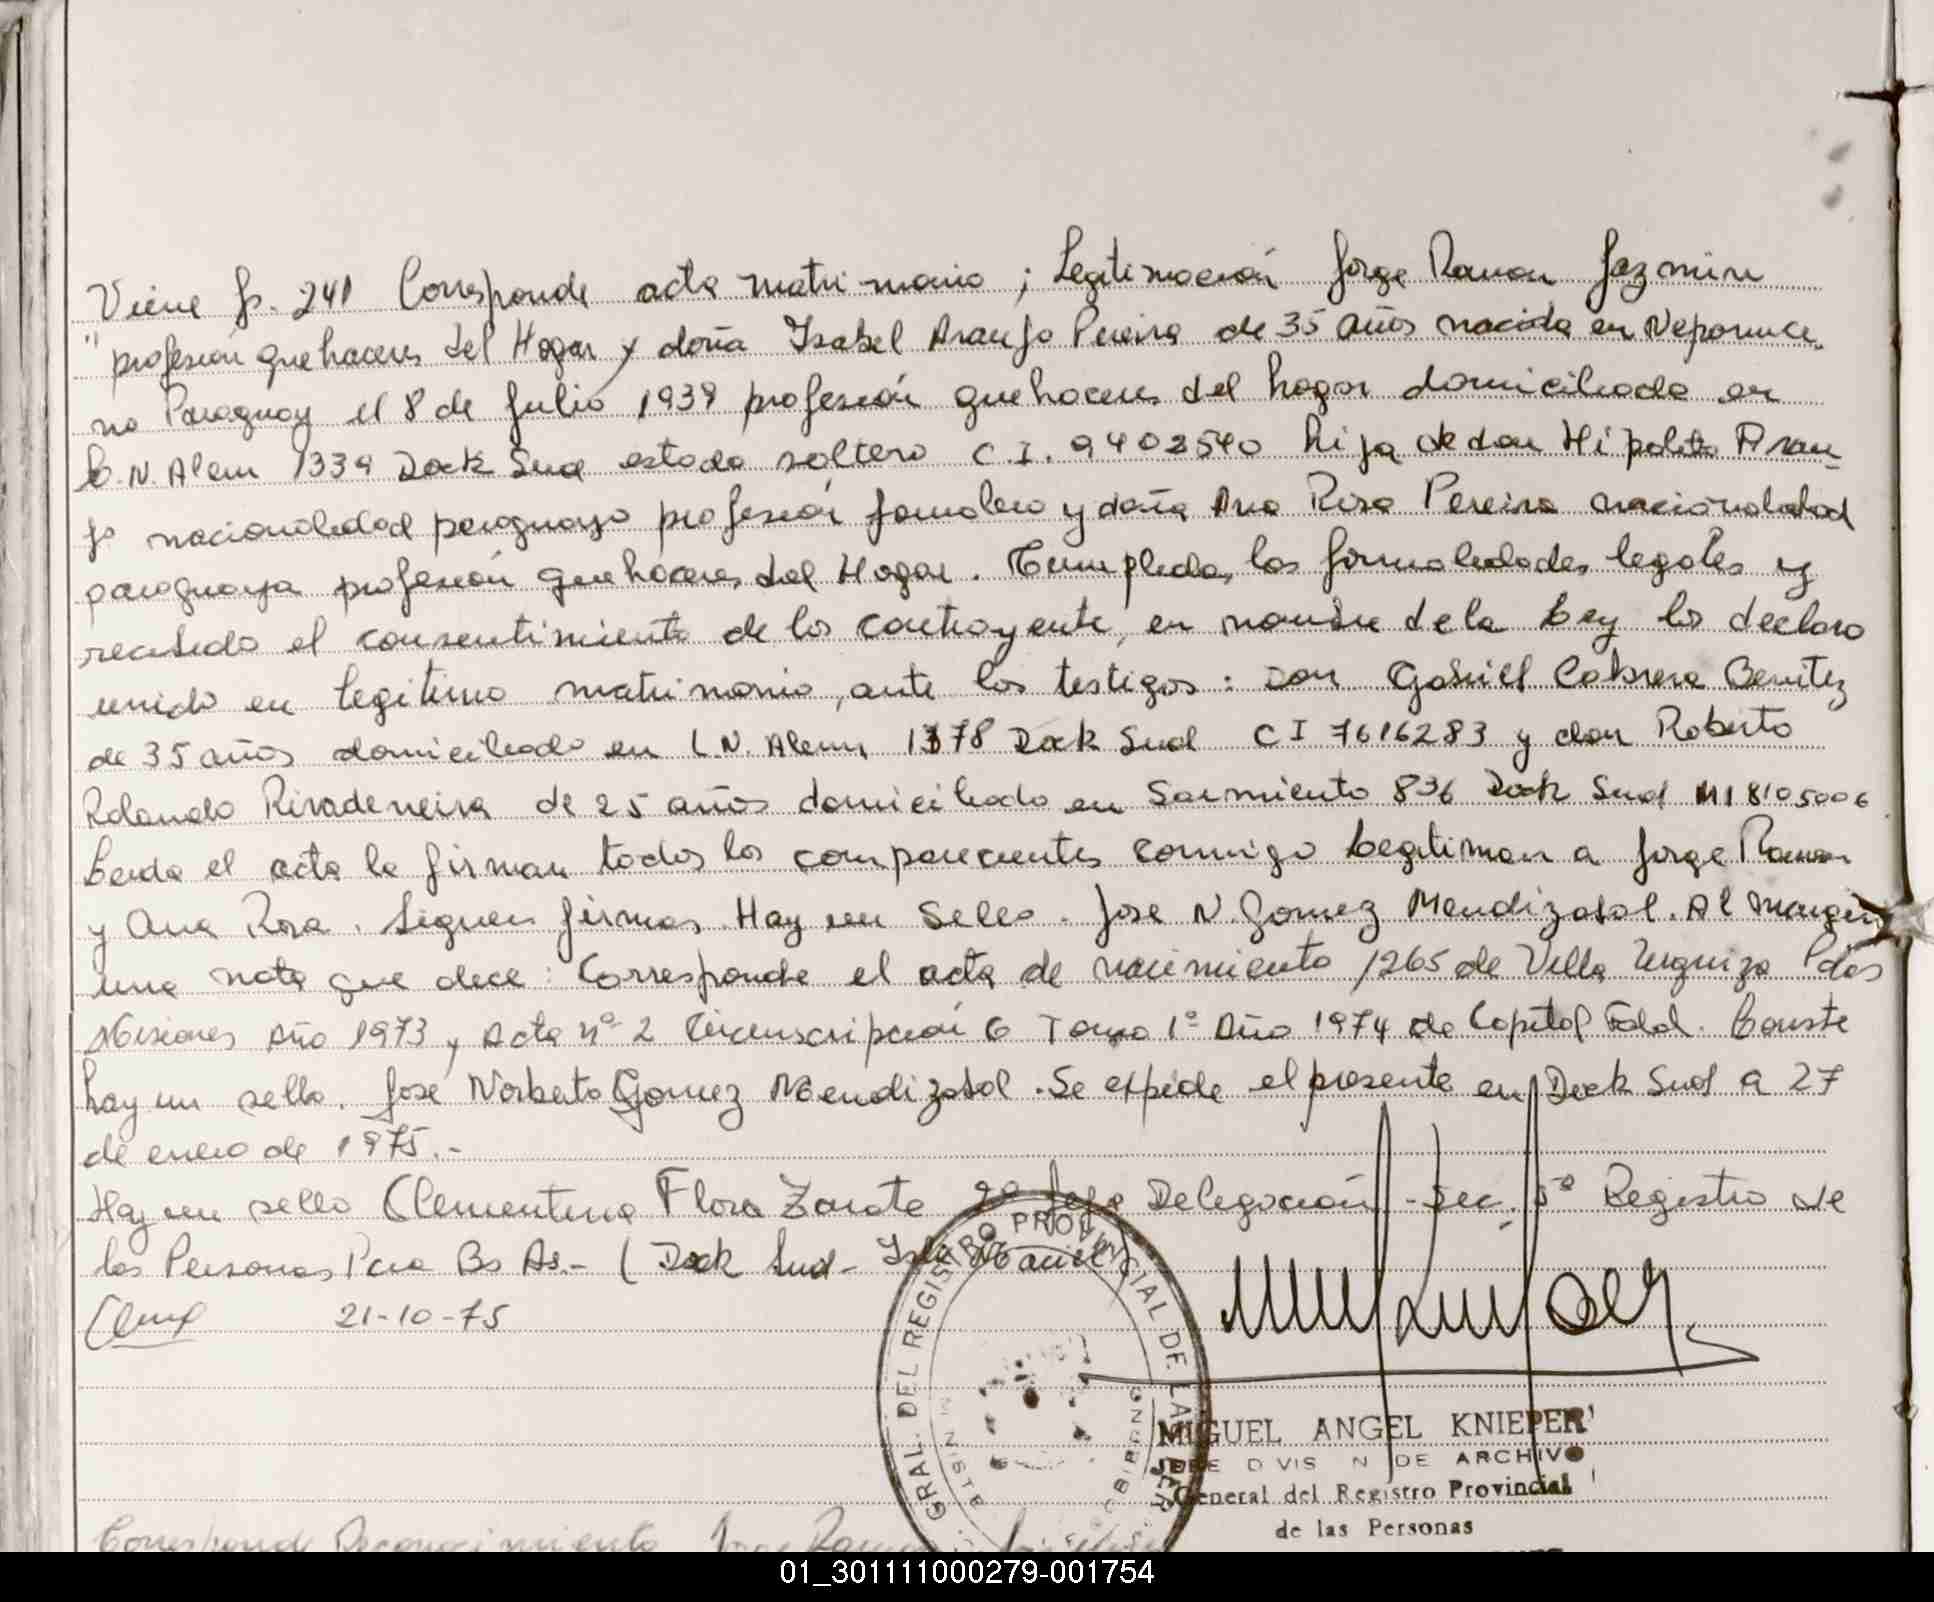 Viene fs. 241 Corresponde acta matrimonio; Legitimación Jorge Ramon Jazmin
" profesión quehaceres del Hogar y doña Isabel Araujo Pereira de 35 años nacida en Nepomuce-
no Paraguay el 8 de Julio 1939 profesión quehaceres del hogar domiciliada en
L.N. Alem 1339 Dock Sud estado soltero C I. 9402540 hija de don Hipolito Arau-
jo nacionalidad paraguayo profesión jornalero y doña Ana Rosa Pereira nacionalidad
paraguaya profesión quehaceres del Hogar. Cumplidas las formalidades legales y
recibido el consentimiento de los contrayente, en nombre de la Ley los declaro
unido en legitimo matrimonio, ante los testigos: Don Gabriel Cabrera Benitez
de 35 años domiciliado en L.N. Alem 1378 Dock Sud C I 7616283 y don Roberto
Rolando Rivadeneira de 25 años domiciliado en Sarmiento 836 Dock Sud MI 8105006
Leida el acta la firman todos los comparecientes conmigo Legitiman a Jorge Ramon
y Ana Rosa. Siguen firmas. Hay un Sello. Jose N. Gomez Mendizabal. Al margen
una nota que dice: Corresponde el acta de nacimiento 1265 de Villa Urquiza Pdas
Misiones Año 1973 y Acta nº 2 Circunscripción 6 Tomo 1º Año 1974 de Capital Fedl. Conste
hay un sello. José Norberto Gomez Mendizabal. Se expide el presente en Dock Sud a 27
de enero de 1975.-
Hay un sello Clementina Flora Zarate 2º Jefe Delegación - Sec. 5º Registro de
las Personas Pcia Bs As.- (Dock Sud - Isla Maciel)
21-10-75
GRAL. DEL REGISTRO PROVINCIAL DE LA
MIGUEL ANGEL KNIEPER
JEFE DIVISION DE ARCHIVO
General del Registro Provincial
de las Personas
Corresponde Reconocimiento Jorge Ramon
01_301111000279-001754